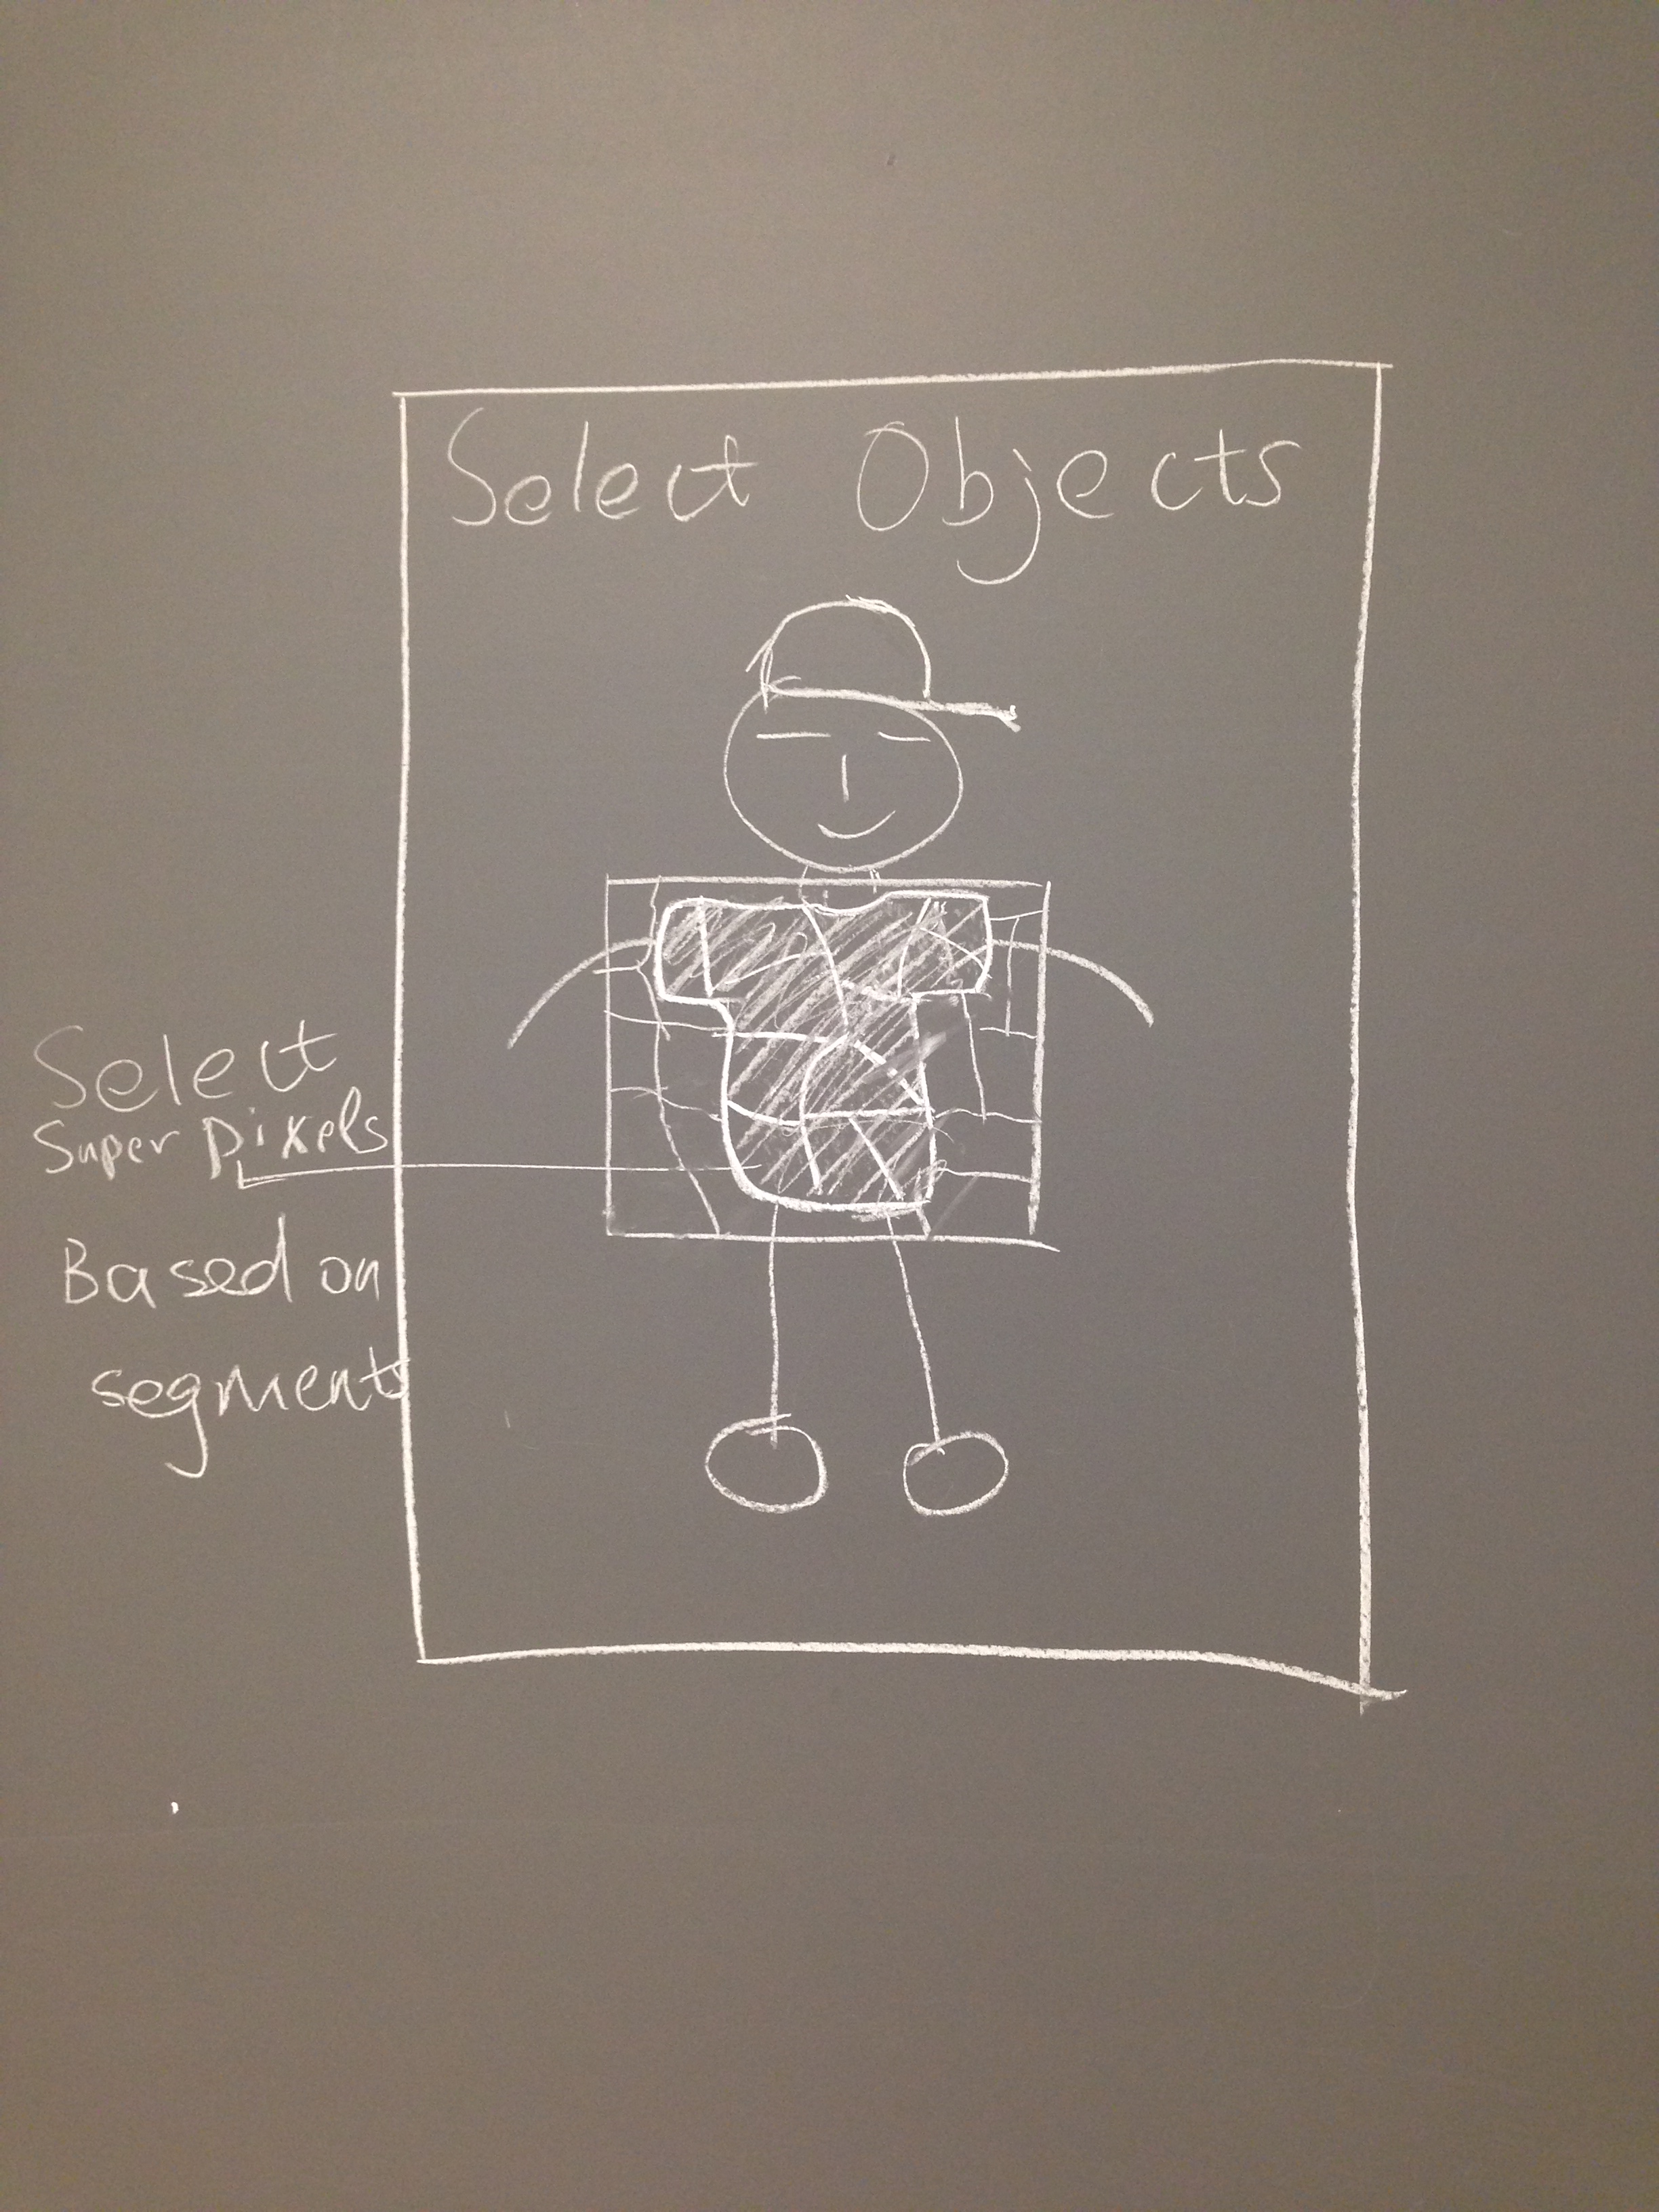 Select Objects
Select
Super Pixels
Based on
segments